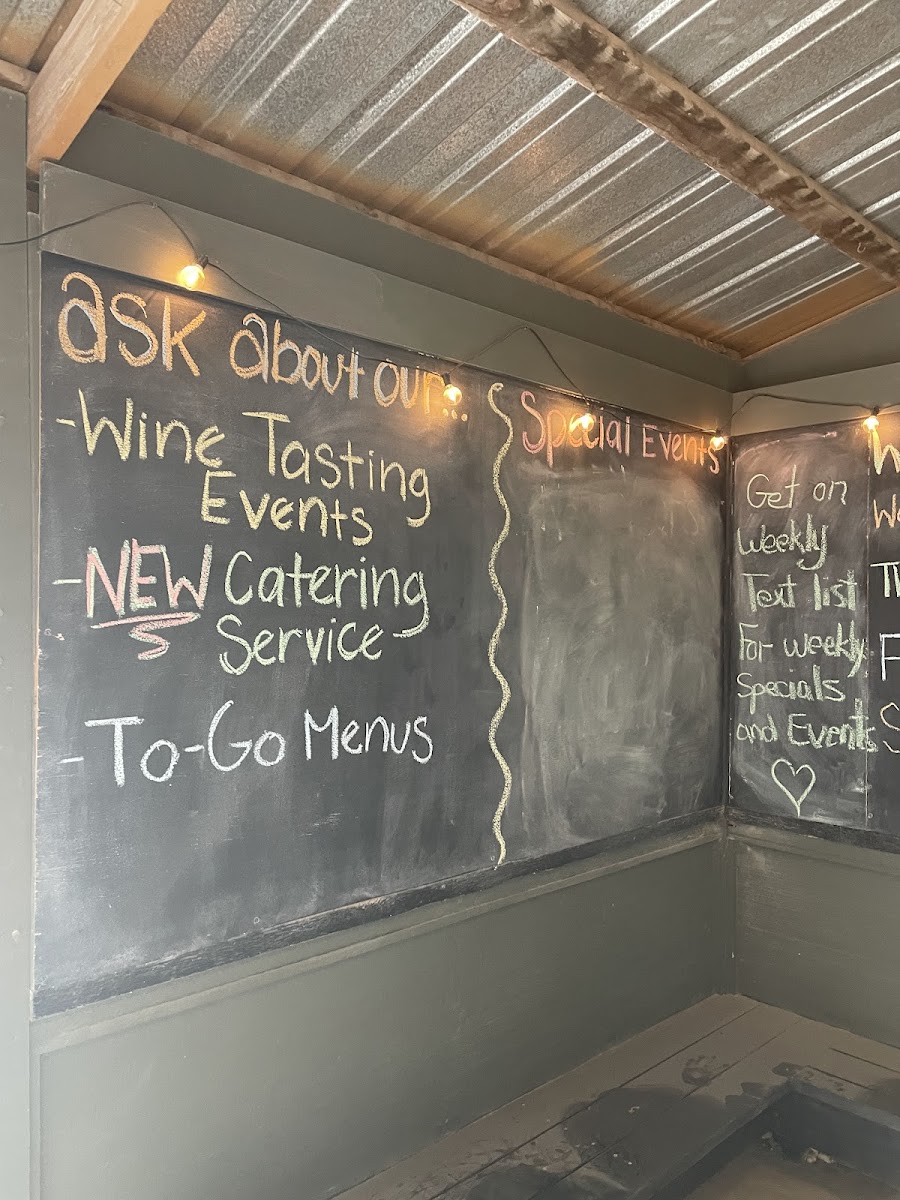 ask about our...
-Wine Tasting
Events
-NEW Catering
Service-
-To-Go Menus
Special Events
Get on
Weekly
Text list
For weekly
Specials
and Events